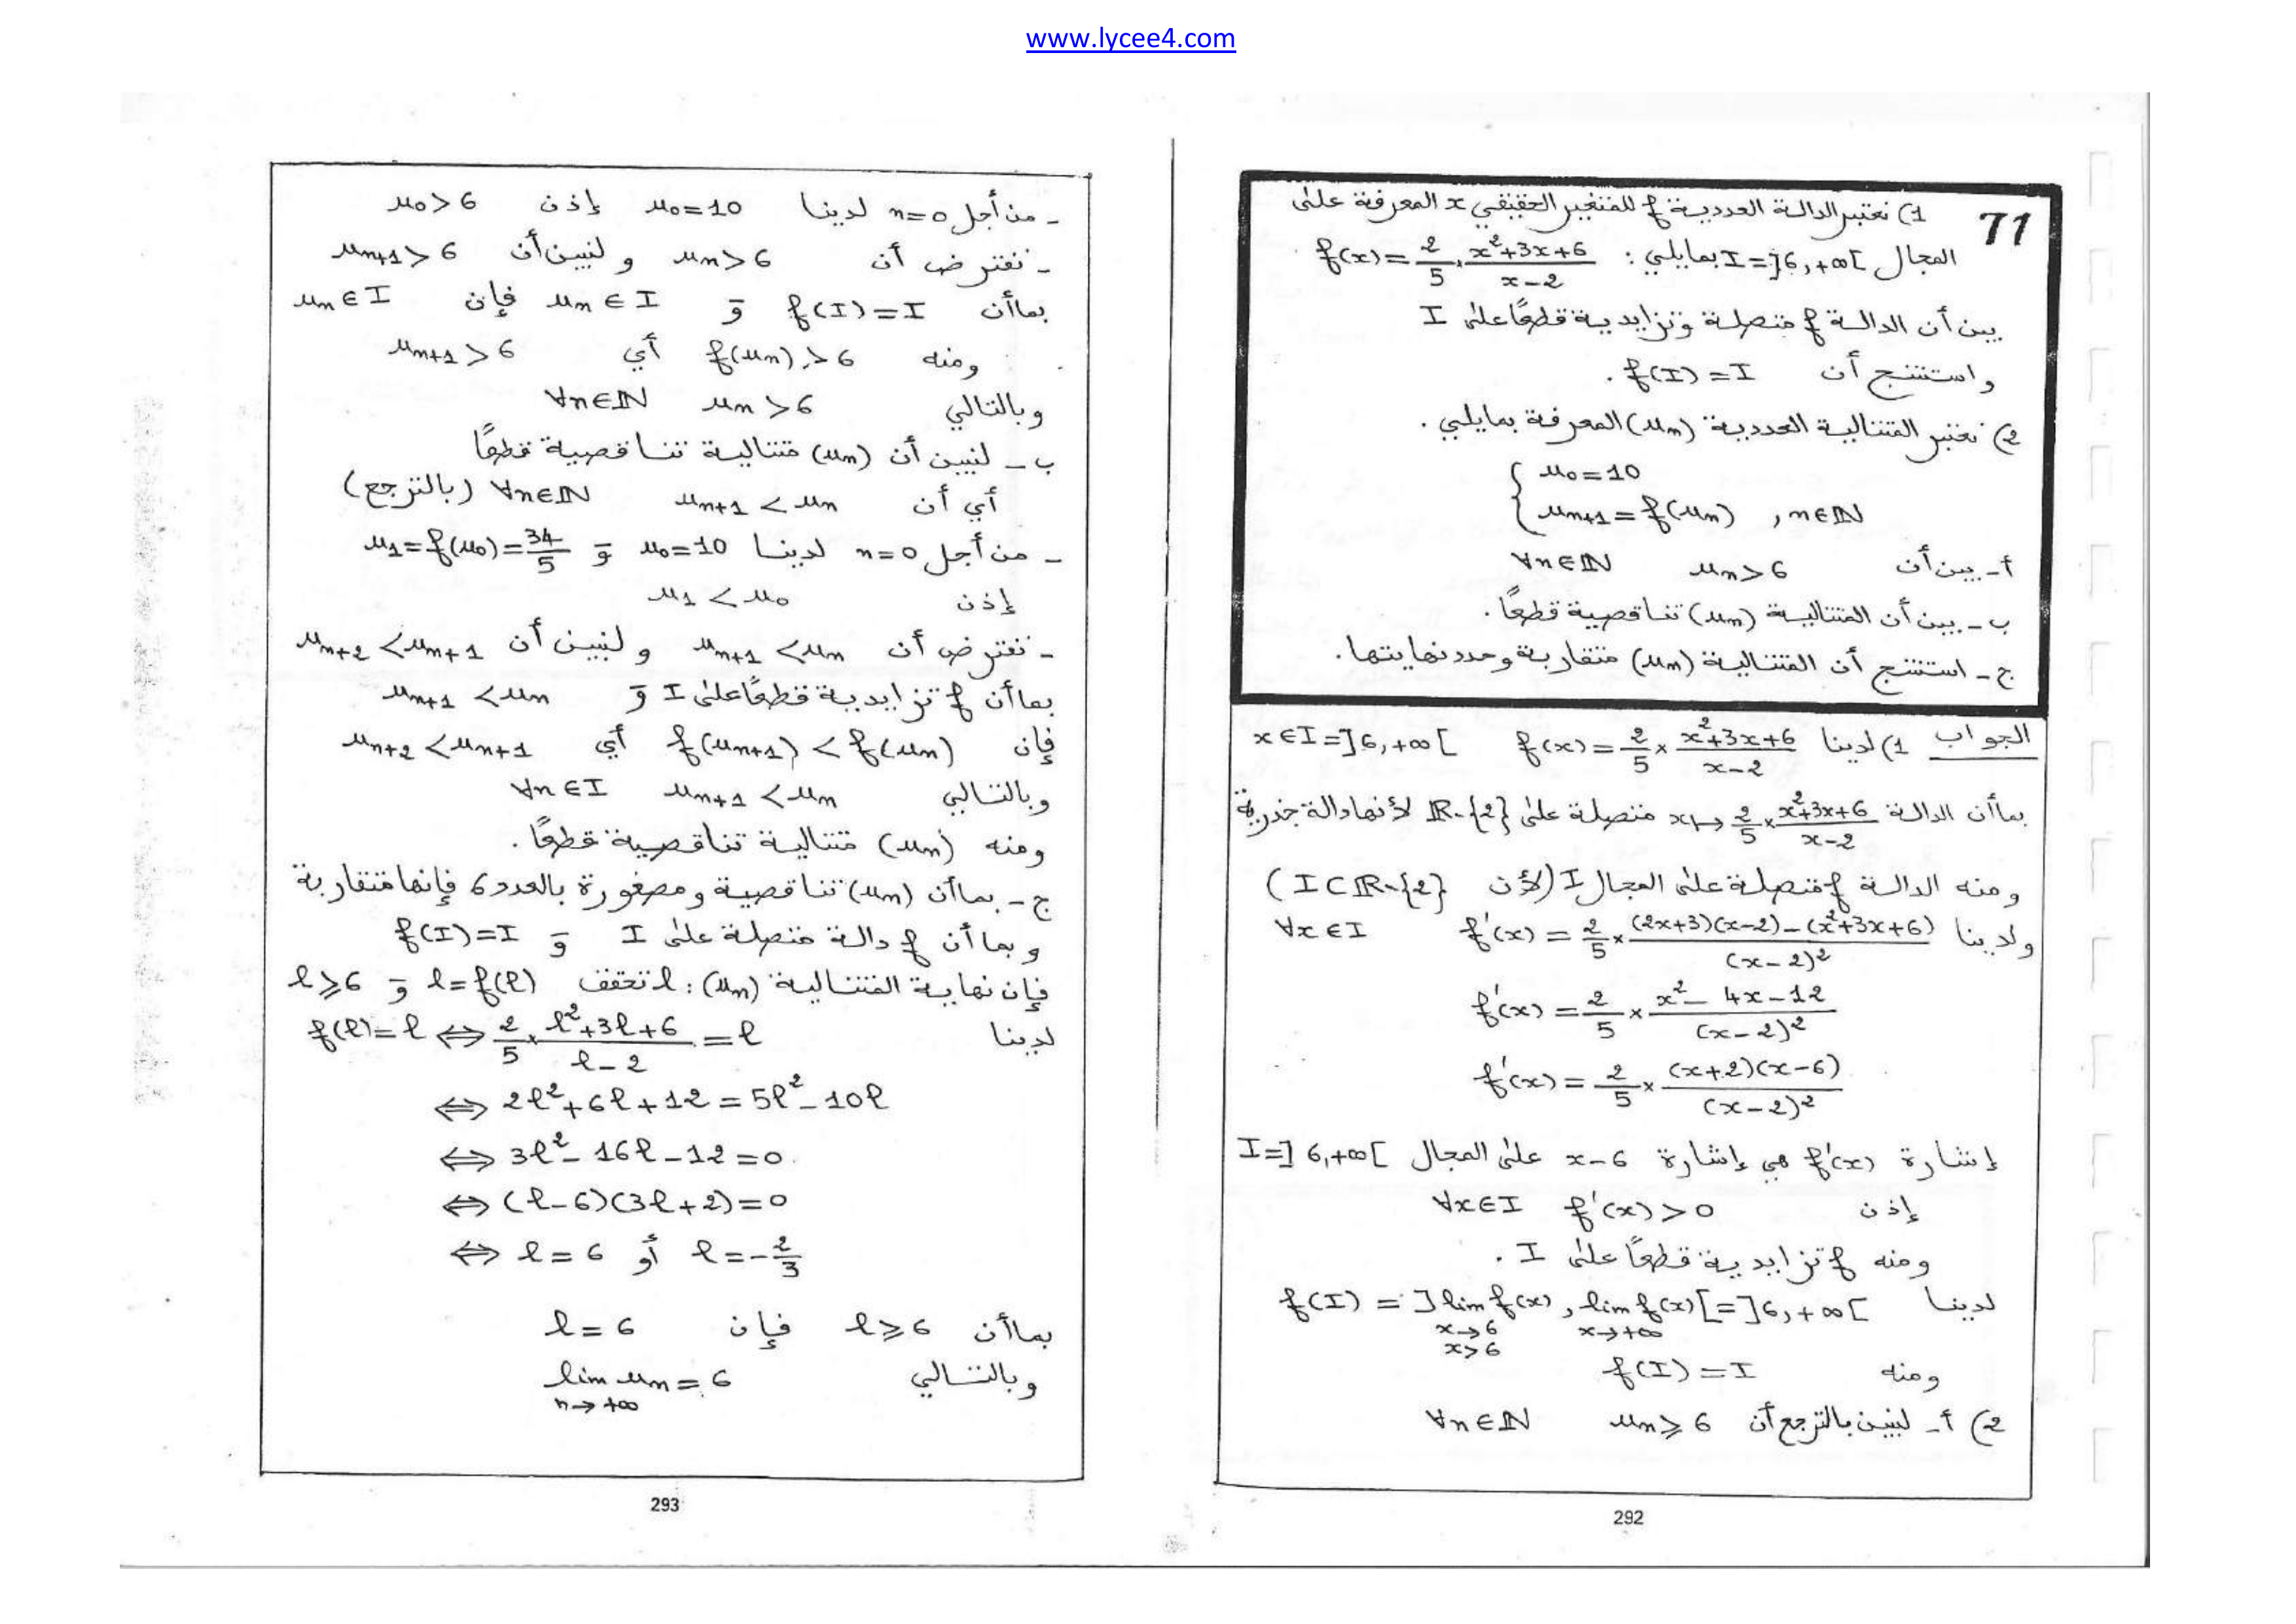 www.lycee4.com
71
1) نعتبر الدالة العددية f للمتغير الحقيقي x المعرفة على
المجال I=]6,+∞[ بمايلي : f(x)=2/5 × (x²+3x+6)/(x-2)
بين أن الدالة f متصلة وتزايدية قطعًا على I
واستنتج أن f(I)=I .
2) نعتبر المتتالية العددية (un) المعرفة بمايلي .
{ u0=10
{ un+1=f(un) , n∈ℕ
أ- بين أن un>6 ∀n∈ℕ
ب- بين أن المتتالية (un) تناقصية قطعًا.
ج- استنتج أن المتتالية (un) متقاربة وحدد نهايتها.
الجواب 1) لدينا f(x)=2/5 × (x²+3x+6)/(x-2) x∈I=]6,+∞[
بماأن الدالة x↦2/5 × (x²+3x+6)/(x-2) متصلة على ℝ-{2} لأنها دالة جذرية
ومنه الدالة f متصلة على المجال I (لأن I⊂ℝ-{2})
ولدينا f'(x)=2/5 × ((2x+3)(x-2)-(x²+3x+6))/(x-2)² ∀x∈I
f'(x)=2/5 × (x²-4x-12)/(x-2)²
f'(x)=2/5 × (x+2)(x-6)/(x-2)²
إشارة f'(x) هي إشارة x-6 على المجال I=]6,+∞[
إذن f'(x)>0 ∀x∈I
ومنه f تزايدية قطعًا على I .
لدينا f(I)=]lim f(x) , lim f(x)[=]6,+∞[
x→6 x→+∞
x>6
ومنه f(I)=I
2) أ- لنبين بالترجع أن un⩾6 ∀n∈ℕ
292
- من أجل n=0 لدينا u0=10 إذن u0>6
- نفترض أن un>6 ولنبين أن un+1>6
بماأن f(I)=I و un∈I فإن un∈I
ومنه f(un)>6 أي un+1>6
وبالتالي un>6 ∀n∈ℕ
ب- لنبين أن (un) متتالية تناقصية قطعًا
أي أن un+1<un ∀n∈ℕ (بالترجع)
- من أجل n=0 لدينا u0=10 و u1=f(u0)=34/5
إذن u1<u0
- نفترض أن un+1<un ولنبين أن un+2<un+1
بماأن f تزايدية قطعًا على I و un+1<un
فإن f(un+1)<f(un) أي un+2<un+1
وبالتالي un+1<un ∀n∈I
ومنه (un) متتالية تناقصية قطعًا.
ج- بماأن (un) تناقصية ومصغورة بالعدد 6 فإنها متقاربة
وبماأن f دالة متصلة على I و f(I)=I
فإن نهاية المتتالية (un) : l تحقق l=f(l) و l⩾6
لدينا f(l)=l ⇔ 2/5 × (l²+3l+6)/(l-2)=l
⇔ 2l²+6l+12=5l²-10l
⇔ 3l²-16l-12=0
⇔ (l-6)(3l+2)=0
⇔ l=6 أو l=-2/3
بماأن l⩾6 فإن l=6
وبالتالي lim un=6
n→+∞
293